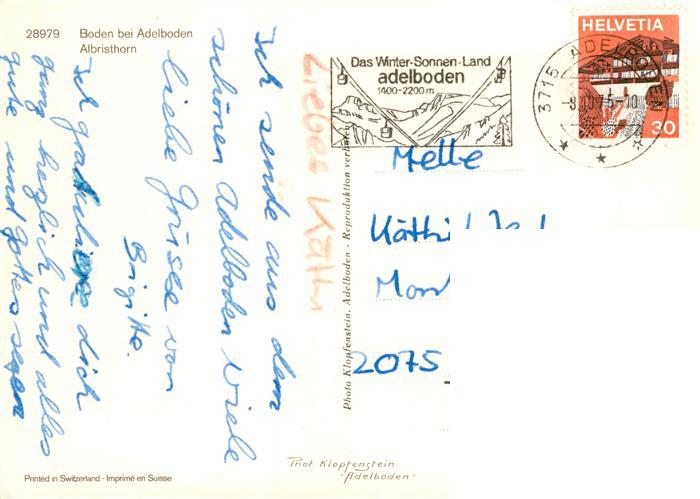 28979 Boden bei Adelboden
Albristhorn
Liebes Käthi
Ich sende aus dem
schönen Adelboden Viele
liebe Grüsse von
Brigitte.
ich gratuliere dich
ganz herzlich und alles
gute und Gottes segen
Printed in Switzerland - Imprimé en Suisse
Das Winter-Sonnen-Land
adelboden
1400-2200 m
3715 ADELBODEN
-8.10.75-10
HELVETIA
30
Photo Klopfenstein, Adelboden - Reproduktion verboten
Melle
Käthi
2075
Phot Klopfenstein
-Adelboden-